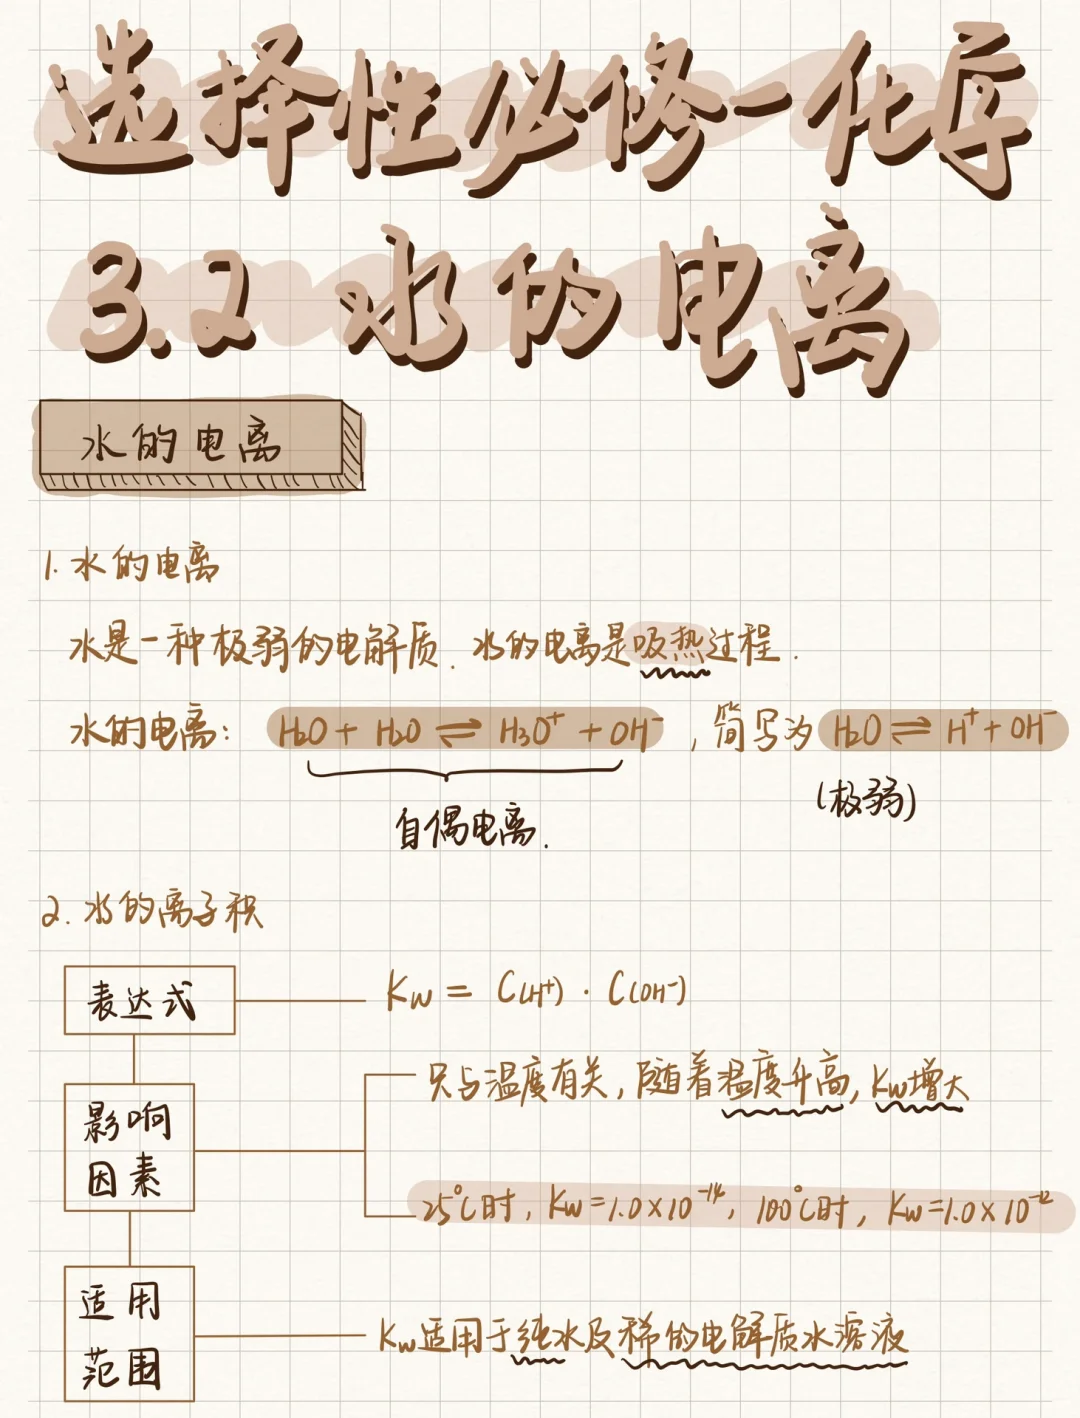 选择性必修一化学
3.2 水的电离
水的电离
1. 水的电离
水是一种极弱的电解质. 水的电离是吸热过程.
水的电离: H₂O + H₂O ⇌ H₃O⁺ + OH⁻, 简写为 H₂O ⇌ H⁺ + OH⁻
(极弱)
自偶电离.
2. 水的离子积
表达式 Kw = C(H⁺) · C(OH⁻)
只与温度有关, 随着温度升高, Kw增大
影响
因素
25℃时, Kw=1.0×10⁻¹⁴, 100℃时, Kw=1.0×10⁻¹²
适用
范围
Kw适用于纯水及稀的电解质水溶液